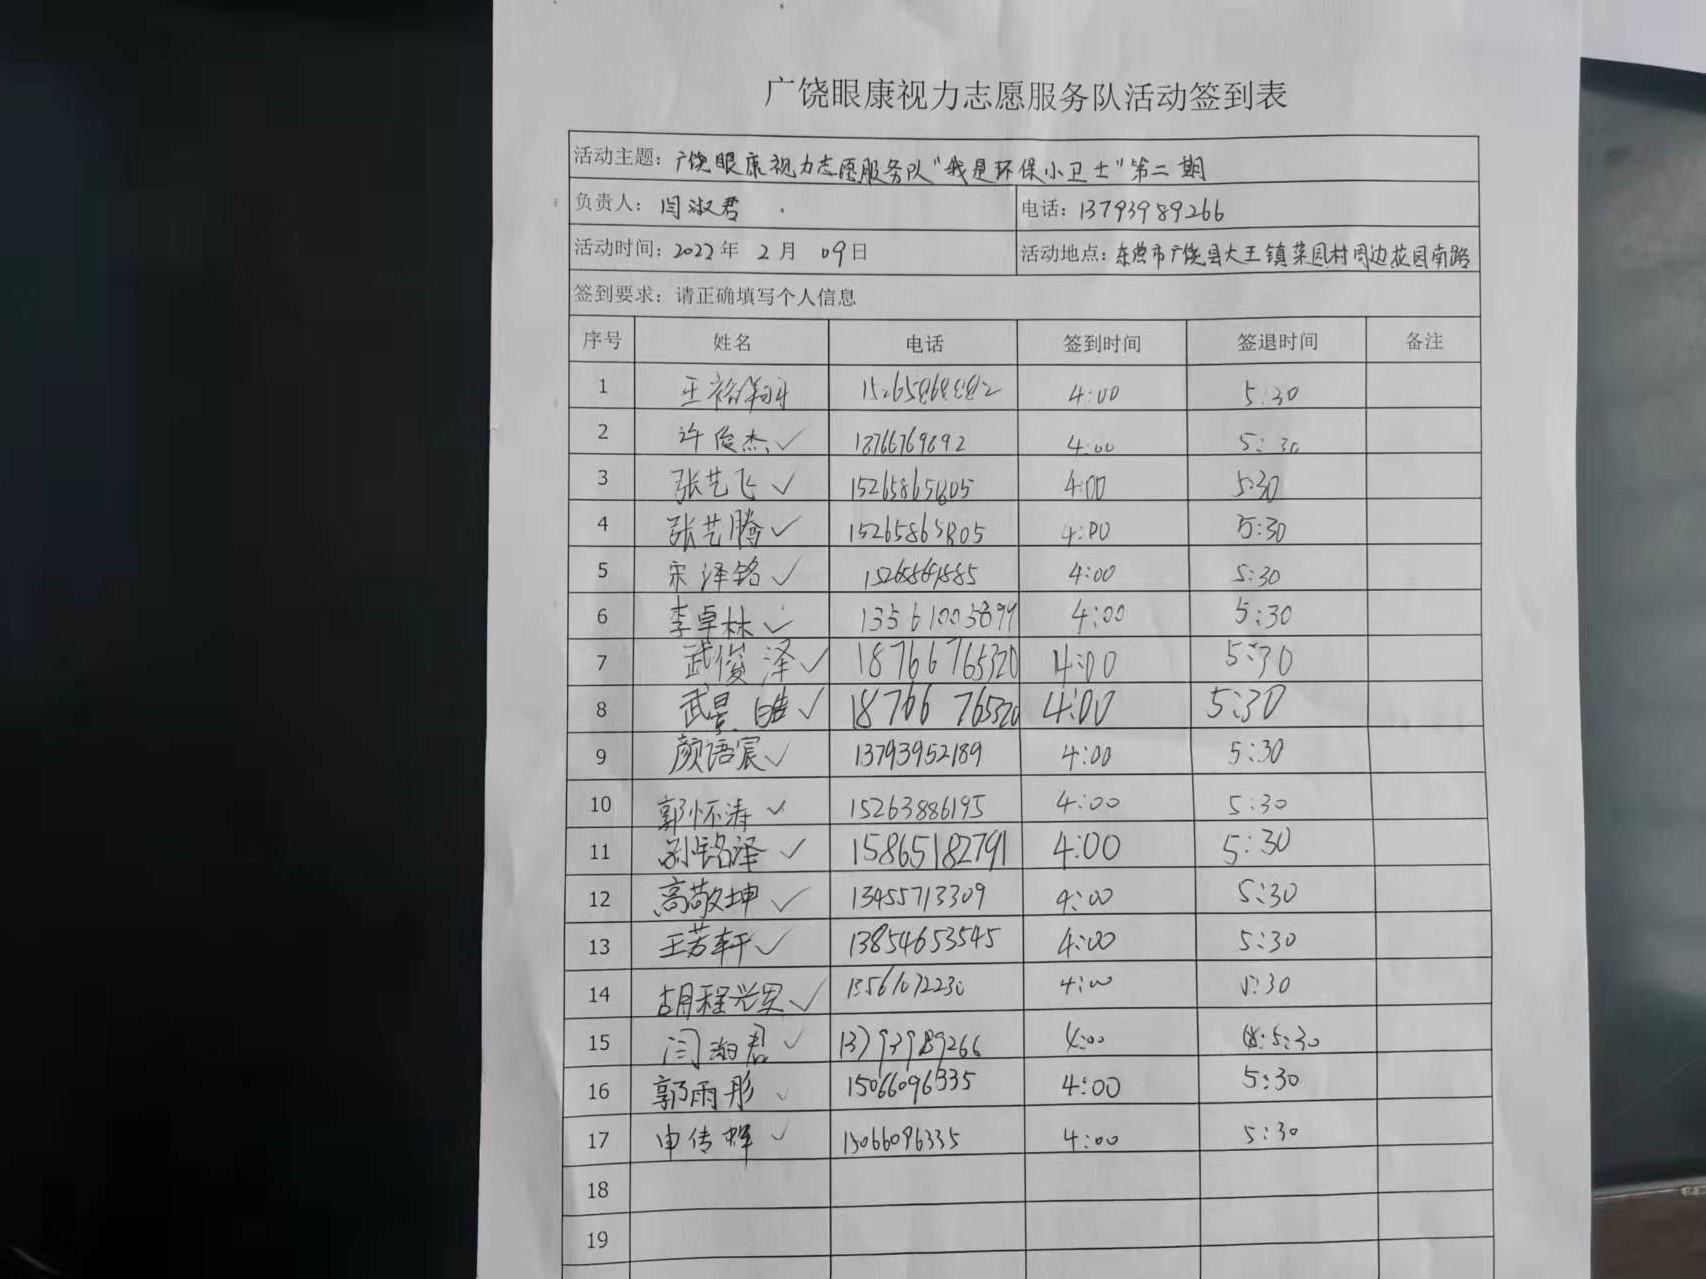 广饶眼康视力志愿服务队活动签到表
活动主题：广饶眼康视力志愿服务队“我是环保小卫士”第二期
负责人：闫淑君 电话：13793989266
活动时间：2022年 2月 09日 活动地点：东营市广饶县大王镇菜园村周边花园南路
签到要求：请正确填写个人信息
序号 姓名 电话 签到时间 签退时间 备注
1 王裕翔 4:00 5:30
2 许俊杰✓ 18766769692 4:00 5:30
3 张艺飞✓ 15265865805 4:00 5:30
4 张艺腾✓ 15265865805 4:00 5:30
5 宋泽铭✓ 4:00 5:30
6 李卓林✓ 13561005899 4:00 5:30
7 武俊泽✓ 18766765320 4:00 5:30
8 武景皓✓ 18766765320 4:00 5:30
9 颜语宸✓ 13793952189 4:00 5:30
10 郭怀涛✓ 15263886195 4:00 5:30
11 刘铭泽✓ 15865182791 4:00 5:30
12 高敬坤✓ 13455713309 4:00 5:30
13 王若轩✓ 13854653545 4:00 5:30
14 胡程兴✓ 13561072230 4:00 5:30
15 闫淑君✓ 13793989266 4:00 5:30
16 郭雨彤✓ 15066096335 4:00 5:30
17 申传辉✓ 15066096335 4:00 5:30
18
19